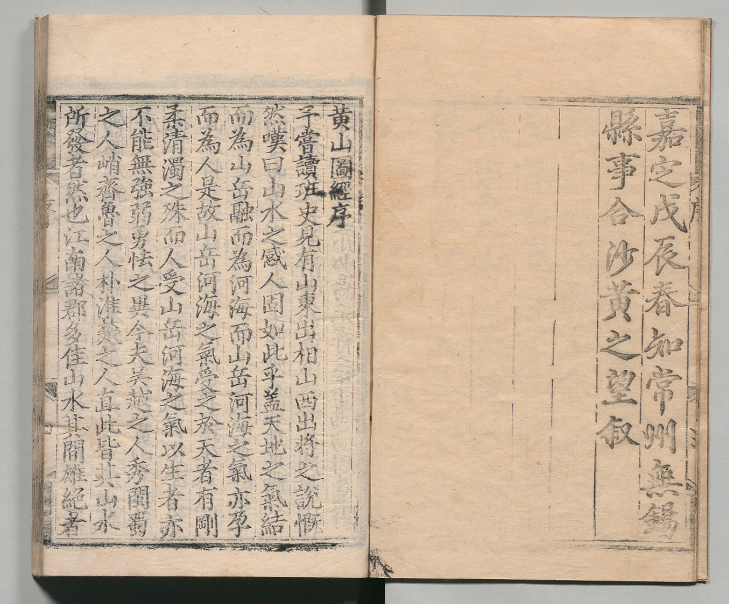 嘉定戊辰春知常州無錫
縣事合沙黃之望叙
黃山圖經序
予嘗讀班史見有山東出相山西出將之說慨
然嘆曰山水之感人固如此乎蓋天地之氣結
而為山岳融而為河海而山岳河海之氣亦孕
而為人是故山岳河海之氣受之於天者有剛
柔清濁之殊而人受山岳河海之氣以生者亦
不能無強弱勇怯之異今夫吳越之人秀閩蜀
之人峭齊魯之人朴淮漢之人直此皆其山水
所發者然也江南諸郡多佳山水其間雄絶者